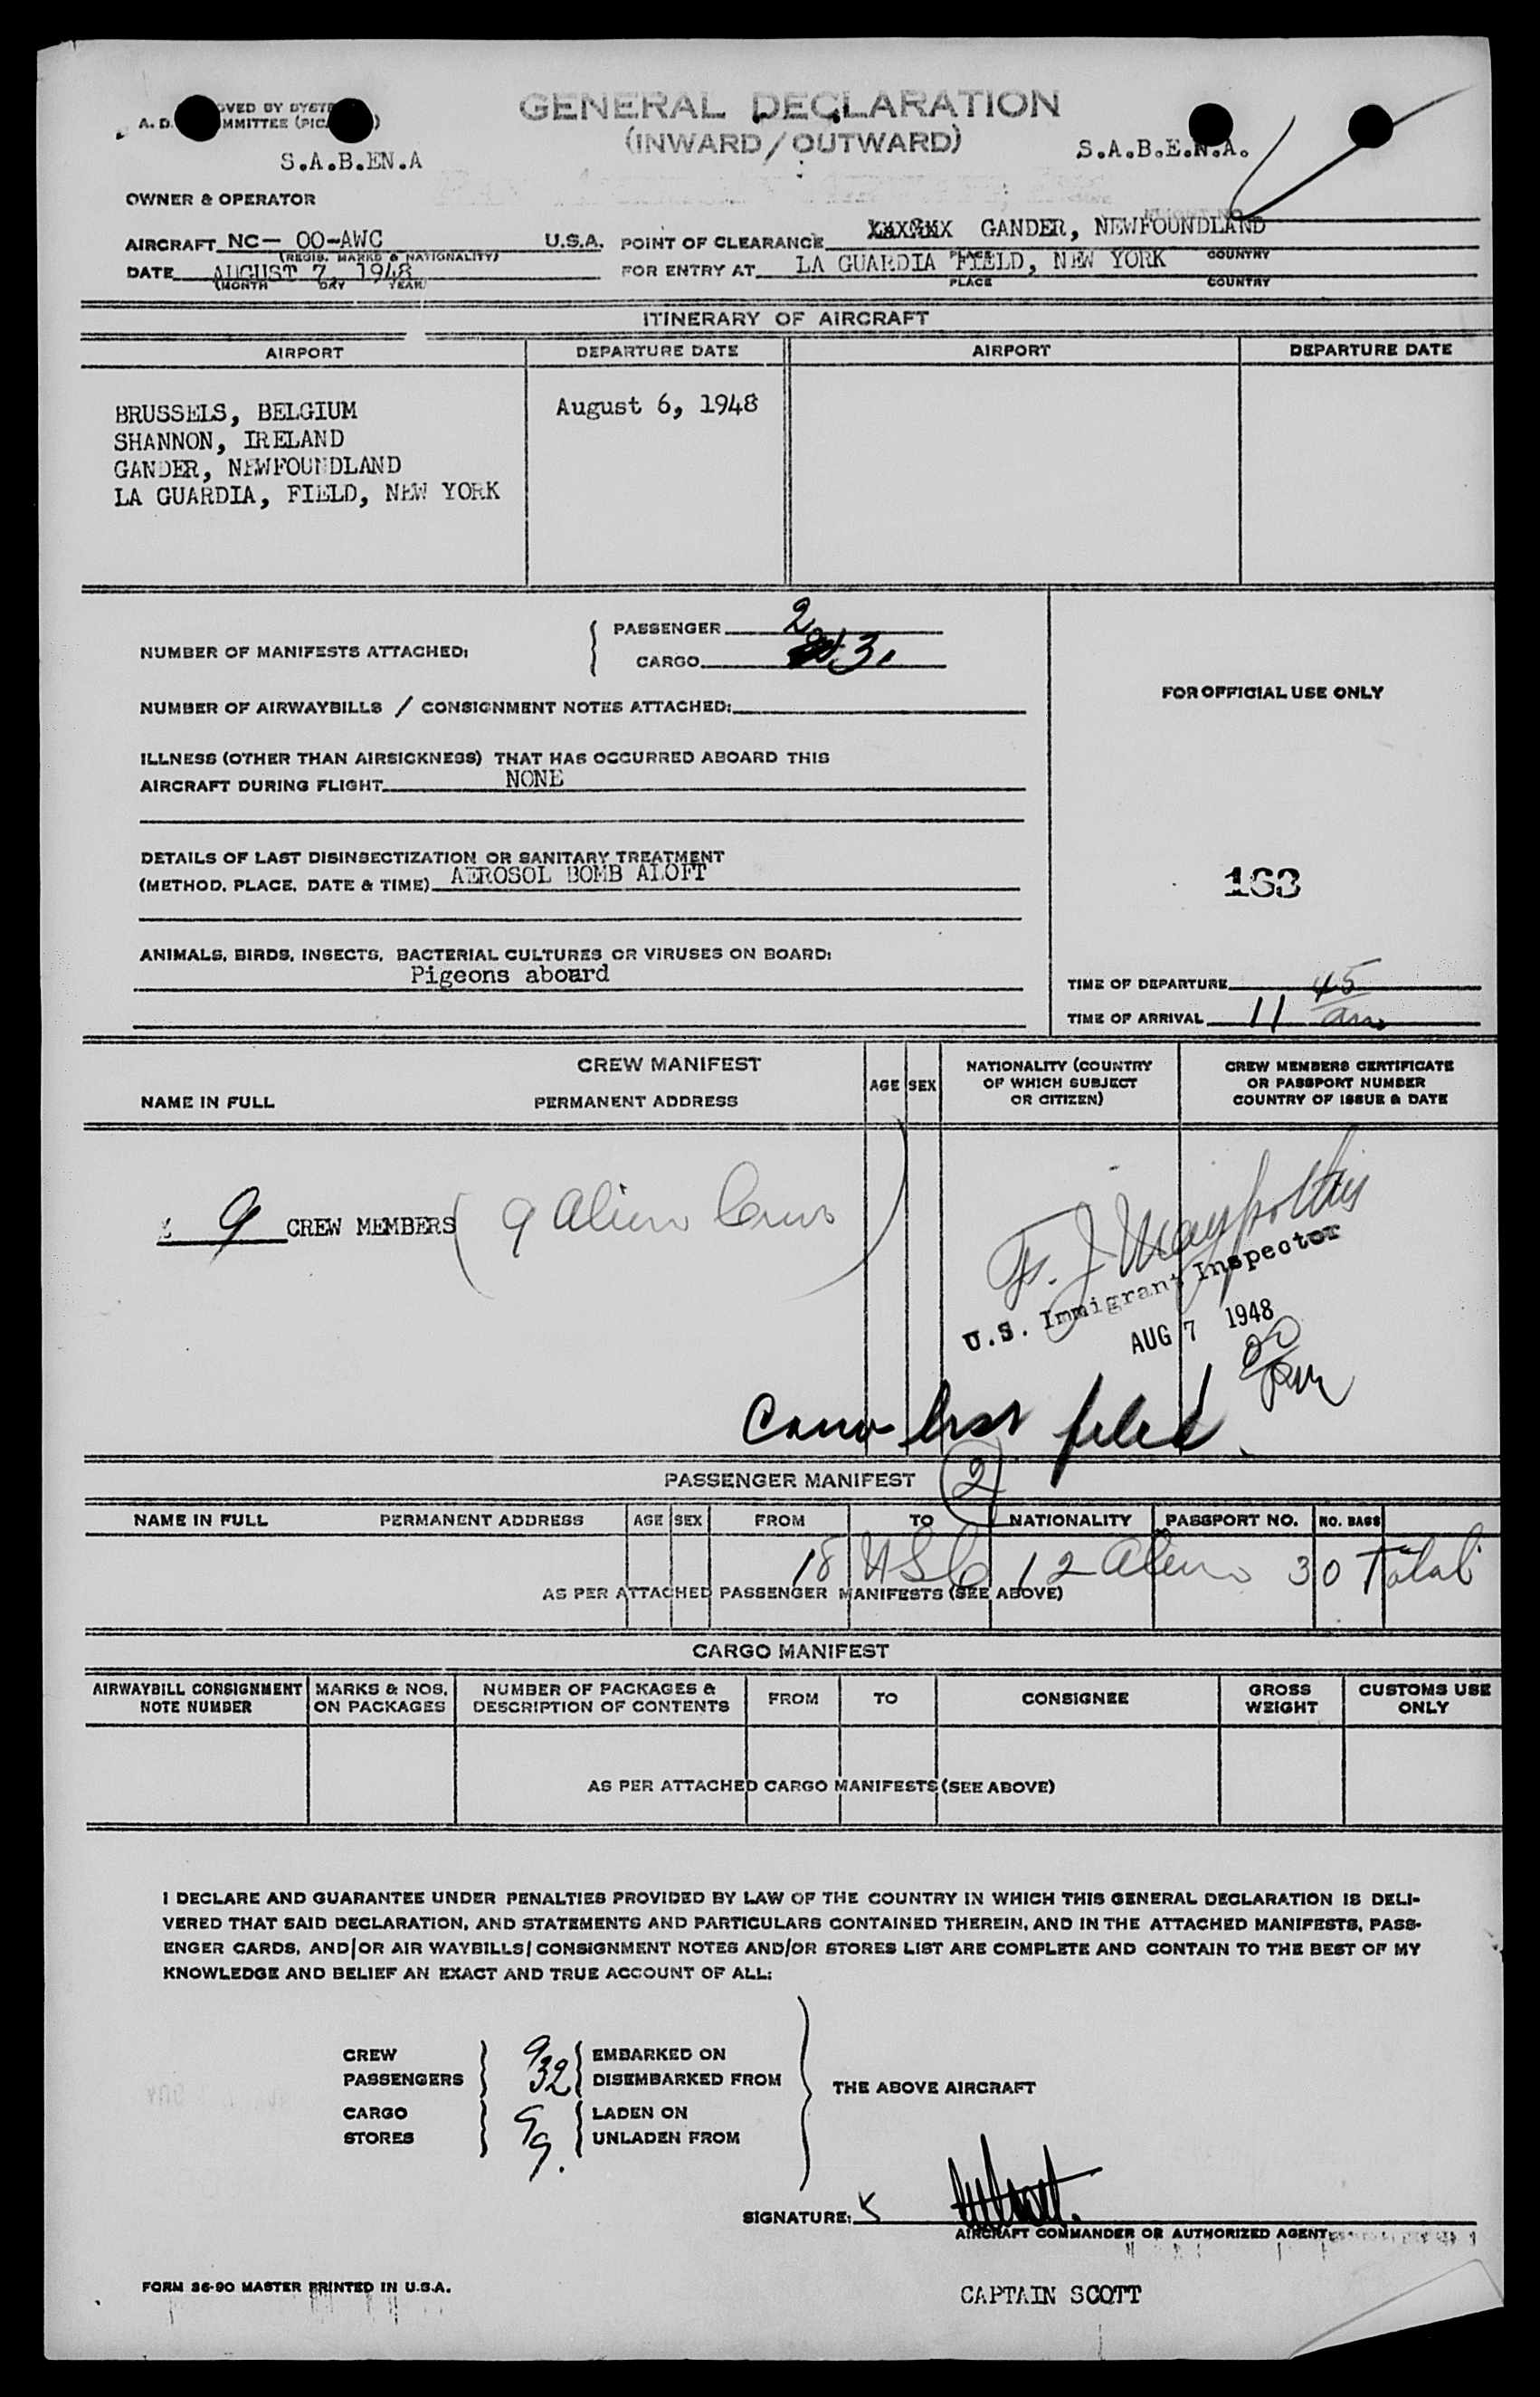 GENERAL DECLARATION
(INWARD/OUTWARD)
S.A.B.EN.A
S.A.B.E.N.A.
OWNER & OPERATOR
AIRCRAFT NC- OO-AWC U.S.A.
(REGIS. MARKS & NATIONALITY)
POINT OF CLEARANCE GANDER, NEWFOUNDLAND
PLACE COUNTRY
DATE AUGUST 7, 1948
(MONTH DAY YEAR)
FOR ENTRY AT LA GUARDIA FIELD, NEW YORK
PLACE COUNTRY
ITINERARY OF AIRCRAFT
AIRPORT DEPARTURE DATE AIRPORT DEPARTURE DATE
BRUSSELS, BELGIUM August 6, 1948
SHANNON, IRELAND
GANDER, NEWFOUNDLAND
LA GUARDIA, FIELD, NEW YORK
NUMBER OF MANIFESTS ATTACHED:
PASSENGER 2
CARGO 3.
FOR OFFICIAL USE ONLY
NUMBER OF AIRWAYBILLS / CONSIGNMENT NOTES ATTACHED:
ILLNESS (OTHER THAN AIRSICKNESS) THAT HAS OCCURRED ABOARD THIS
AIRCRAFT DURING FLIGHT NONE
DETAILS OF LAST DISINSECTIZATION OR SANITARY TREATMENT
(METHOD, PLACE, DATE & TIME) AEROSOL BOMB ALOFT
163
ANIMALS, BIRDS, INSECTS, BACTERIAL CULTURES OR VIRUSES ON BOARD:
Pigeons aboard
TIME OF DEPARTURE
TIME OF ARRIVAL 11 45 am
CREW MANIFEST
NAME IN FULL PERMANENT ADDRESS AGE SEX
NATIONALITY (COUNTRY
OF WHICH SUBJECT
OR CITIZEN)
CREW MEMBERS CERTIFICATE
OR PASSPORT NUMBER
COUNTRY OF ISSUE & DATE
9 CREW MEMBERS (9 alien Crew)
U.S. Immigrant Inspector
AUG 7 1948
Crew list filed
PASSENGER MANIFEST (2)
NAME IN FULL PERMANENT ADDRESS AGE SEX FROM TO NATIONALITY PASSPORT NO. NO. BAGS
18 USC 12 alien 30 Total
AS PER ATTACHED PASSENGER MANIFESTS (SEE ABOVE)
CARGO MANIFEST
AIRWAYBILL CONSIGNMENT
NOTE NUMBER
MARKS & NOS,
ON PACKAGES
NUMBER OF PACKAGES &
DESCRIPTION OF CONTENTS
FROM TO CONSIGNEE
GROSS
WEIGHT
CUSTOMS USE
ONLY
AS PER ATTACHED CARGO MANIFESTS (SEE ABOVE)
I DECLARE AND GUARANTEE UNDER PENALTIES PROVIDED BY LAW OF THE COUNTRY IN WHICH THIS GENERAL DECLARATION IS DELI-
VERED THAT SAID DECLARATION, AND STATEMENTS AND PARTICULARS CONTAINED THEREIN, AND IN THE ATTACHED MANIFESTS, PASS-
ENGER CARDS, AND/OR AIR WAYBILLS/CONSIGNMENT NOTES AND/OR STORES LIST ARE COMPLETE AND CONTAIN TO THE BEST OF MY
KNOWLEDGE AND BELIEF AN EXACT AND TRUE ACCOUNT OF ALL:
CREW 9 EMBARKED ON
PASSENGERS 32 DISEMBARKED FROM
THE ABOVE AIRCRAFT
CARGO LADEN ON
STORES UNLADEN FROM
SIGNATURE:
AIRCRAFT COMMANDER OR AUTHORIZED AGENT
FORM 36-90 MASTER PRINTED IN U.S.A.
CAPTAIN SCOTT